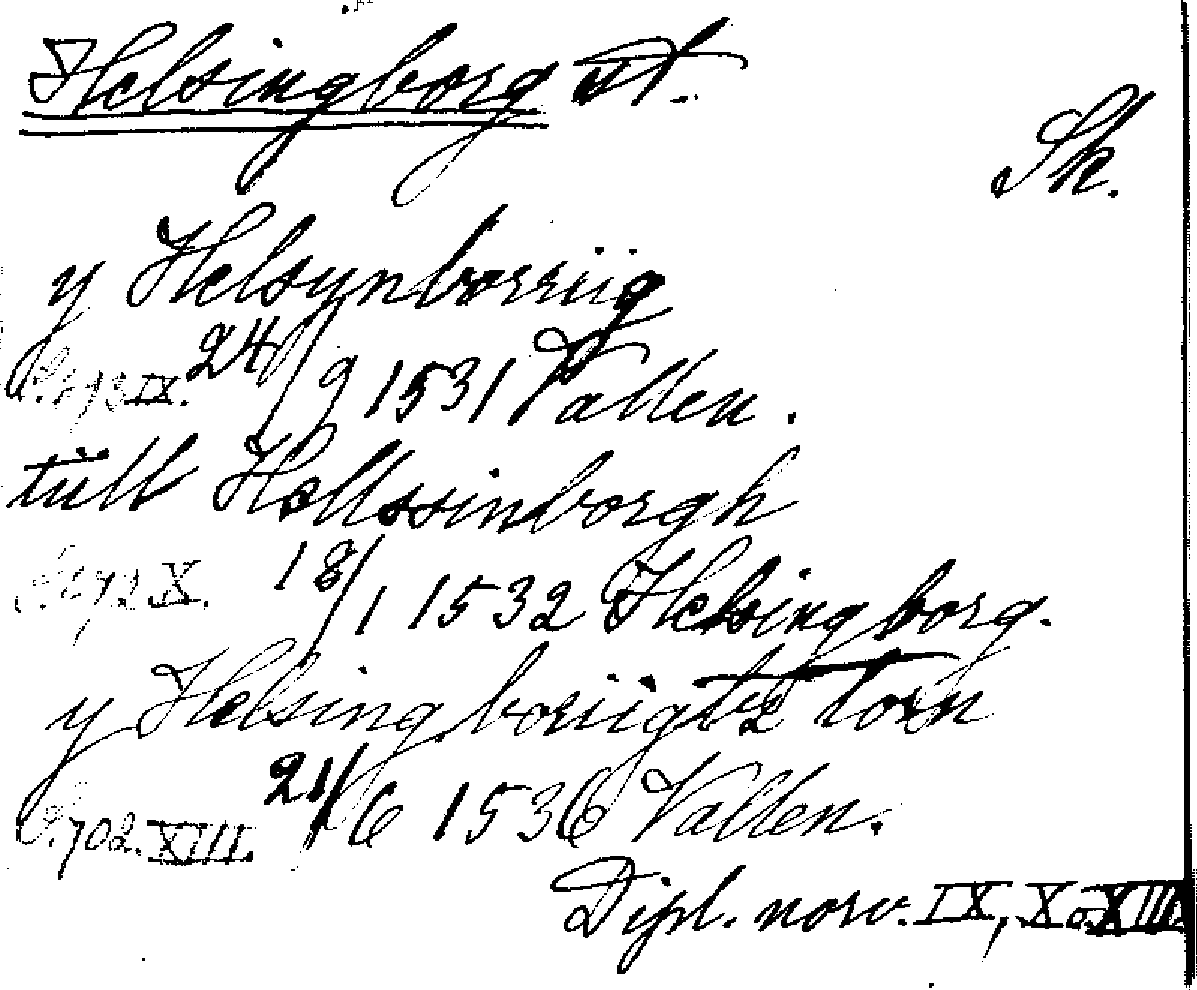 Helsingborg st.
Sk.
y Helsynborriig
24/9 1531 Vallen.
tüll Hellssinborgh
18/1 1532 Helsingborg.
y Helsingboriigtz torn
S. 702. XIII. 21/6 1536 Vallen.
Dipl. norv. IX, X o. XIII.